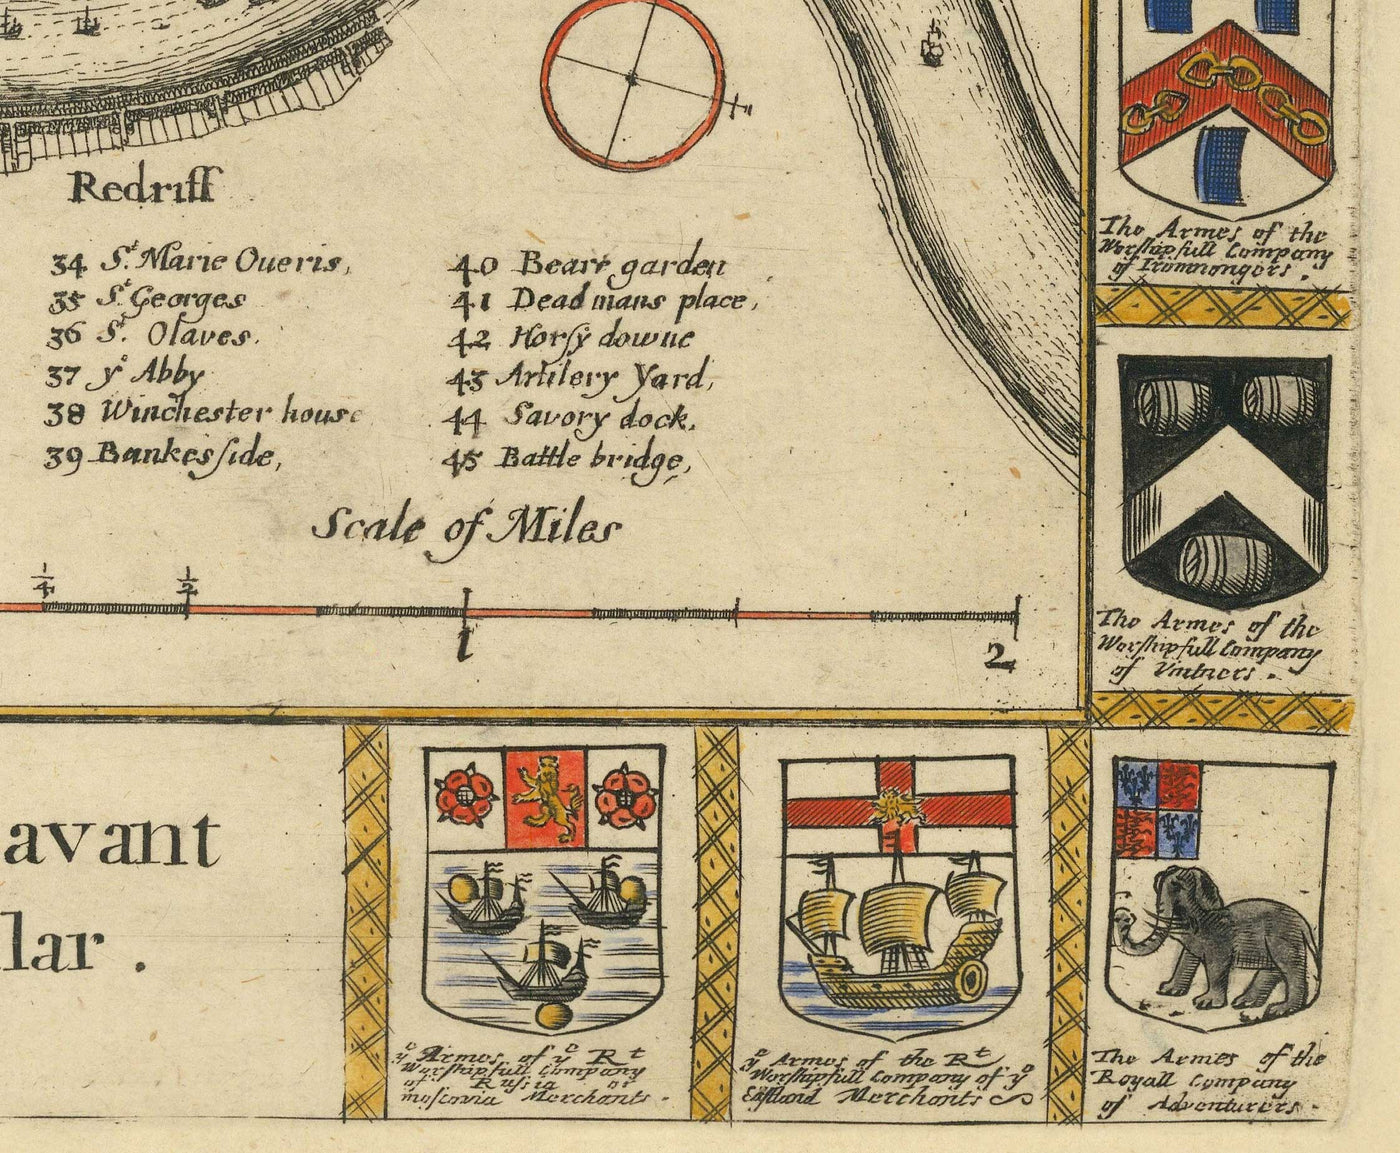 Redriff
34 St. Marie Oueris,
35 St. Georges
36 St. Olaves.
37 ye Abby
38 Winchester house
39 Bankesside,
40 Beare garden
41 Dead mans place,
42 Horsy downe
43 Artilery Yard,
44 Savory dock,
45 Battle bridge,
Scale of Miles
1/4
1/2
1
2
avant
lar.
The Armes of the
Worshipfull Company
of Ironmongers.
The Armes of the
Worshipfull Company
of Vintners.
ye Armes of ye Rt
Worshipfull Company
of Rusia or
moscovia Merchants.
ye Armes of the Rt
Worshipfull Company of ye
Eastland Merchants
The Armes of the
Royall Company
of Adventurers.